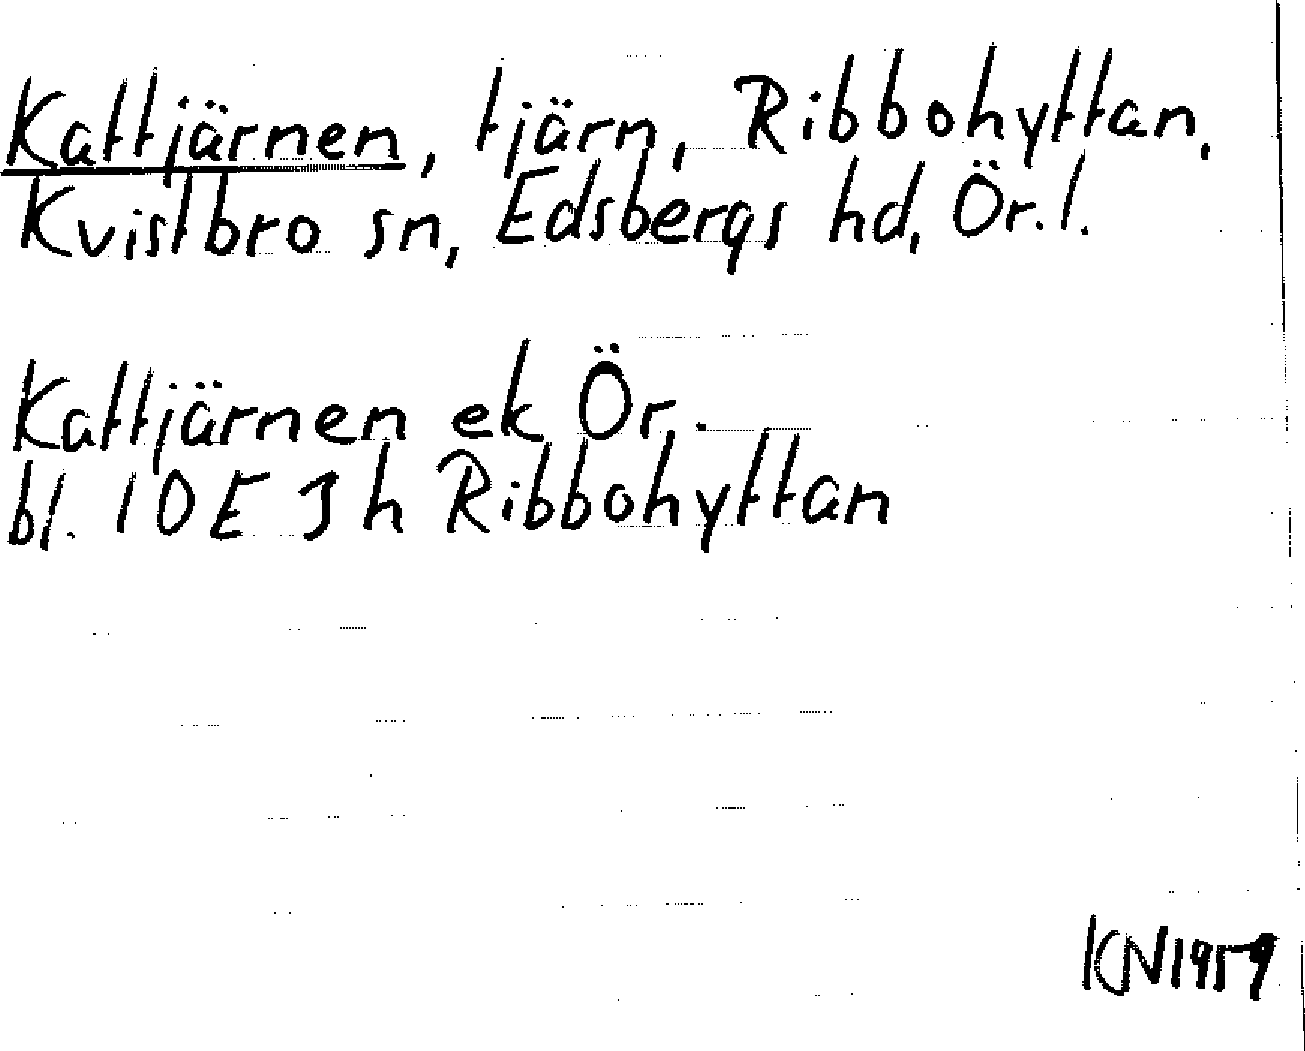 Kattjärnen, tjärn, Ribbohyttan,
Kvistbro sn, Edsbergs hd, Ör. l.
Kattjärnen ek Ör.
bl. 10 E 3 h Ribbohyttan
KN 1959